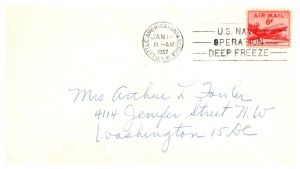 LITTLE AMERICA
JAN 1
8-AM
1957
U.S. NAVY
OPERATION
DEEP FREEZE
AIR MAIL
6¢
Mrs Arthur L Fowler
4114 Jenifer Street N.W
Washington 15 DC